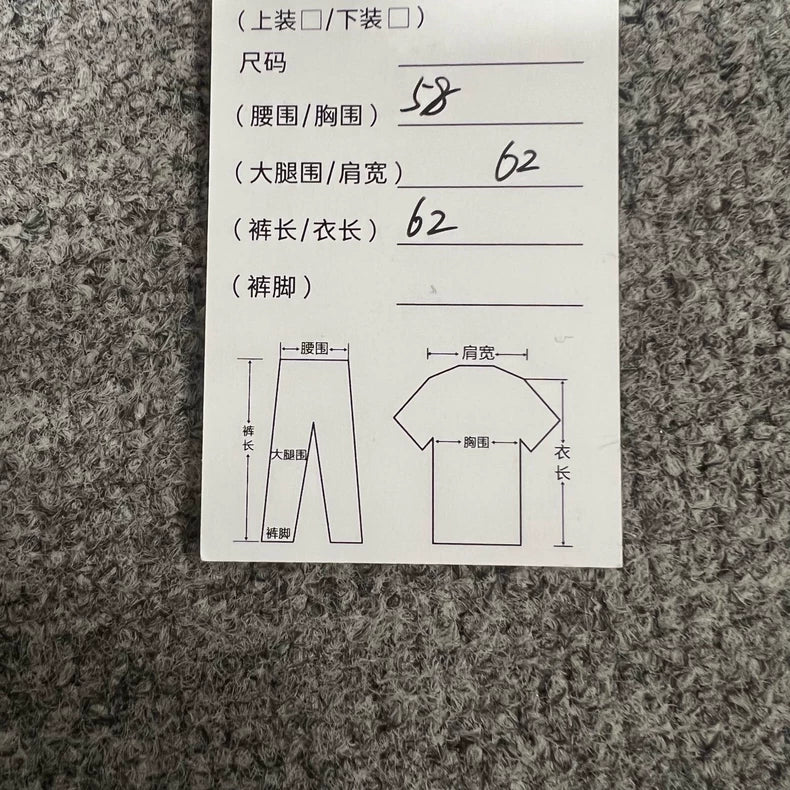 （上装□/下装□）
尺码
（腰围/胸围）58
（大腿围/肩宽）62
（裤长/衣长）62
（裤脚）
腰围
肩宽
裤长
大腿围
胸围
衣长
裤脚